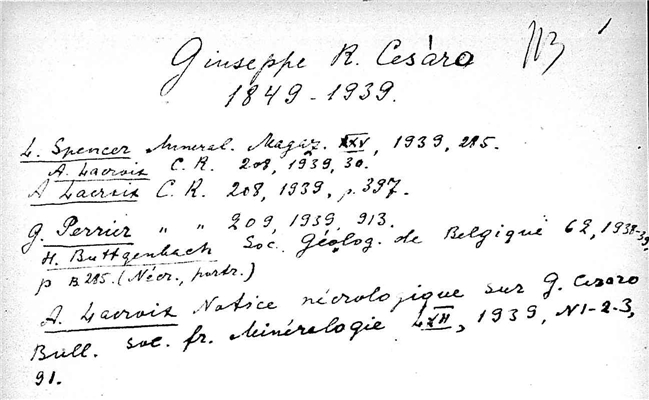 Giuseppe R. Cesàro
1849-1939.
L. Spencer Mineral. Magaz. XXV, 1939, 285.
A. Lacroix C. R. 208, 1939, 30.
A Lacroix C. R. 208, 1939, p. 397.
G. Perrier " " 209, 1939, 913.
H. Buttgenbach Soc. Géolog. de Belgique 62, 1938-39,
p B 285. (Nécr., portr.)
A. Lacroix Notice nécrologique sur G. Cesaro
Bull. soc. fr. Minéralogie LXII, 1939, N1-2-3,
91.